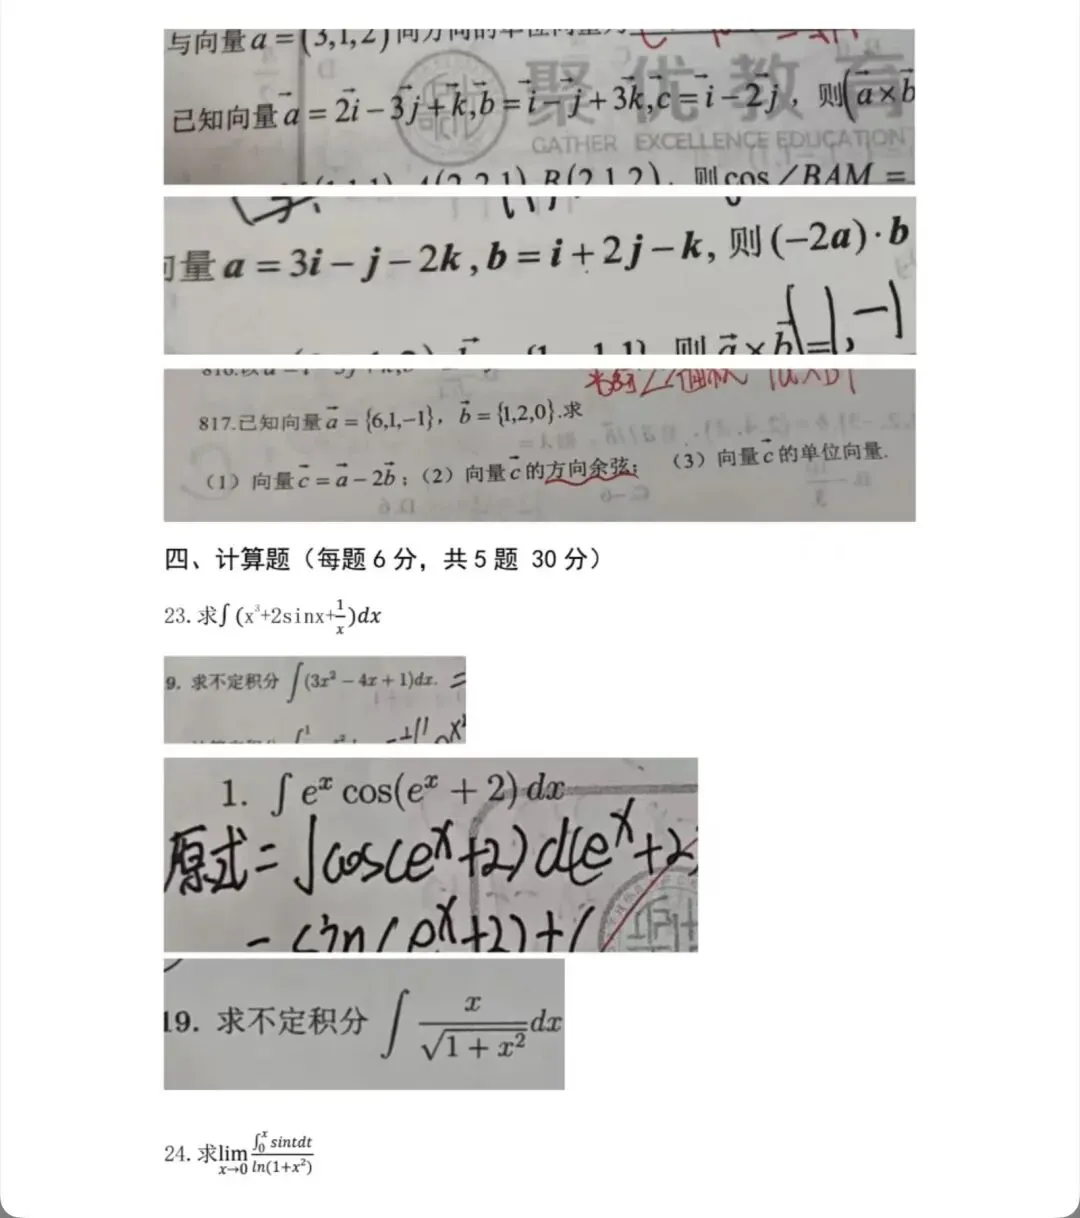 与向量a = (3,1,2)同方向的单位向量为
聚优教育
已知向量a⃗ = 2i⃗ − 3j⃗ + k⃗, b⃗ = i⃗ − j⃗ + 3k⃗, c⃗ = i⃗ − 2j⃗, 则(a⃗ × b⃗
GATHER EXCELLENCE EDUCATION
则 cos ∠BAM =
向量 a = 3i − j − 2k, b = i + 2j − k, 则 (−2a) · b
则 a⃗ × b⃗ =
817.已知向量a⃗ = {6,1,−1}, b⃗ = {1,2,0}.求
(1) 向量c⃗ = a⃗ − 2b⃗; (2) 向量c⃗的方向余弦; (3) 向量c⃗的单位向量.
四、计算题（每题6分，共5题 30分）
23. 求∫(x³+2sinx+1/x)dx
9. 求不定积分 ∫(3x² − 4x + 1)dx. =
1. ∫ eˣ cos(eˣ + 2) dx
原式 = ∫cos(eˣ+2) d(eˣ+2
= sin(eˣ+2)+C
19. 求不定积分 ∫ x/√(1 + x²) dx
24. 求lim x→0 ∫₀ˣ sintdt / ln(1+x²)